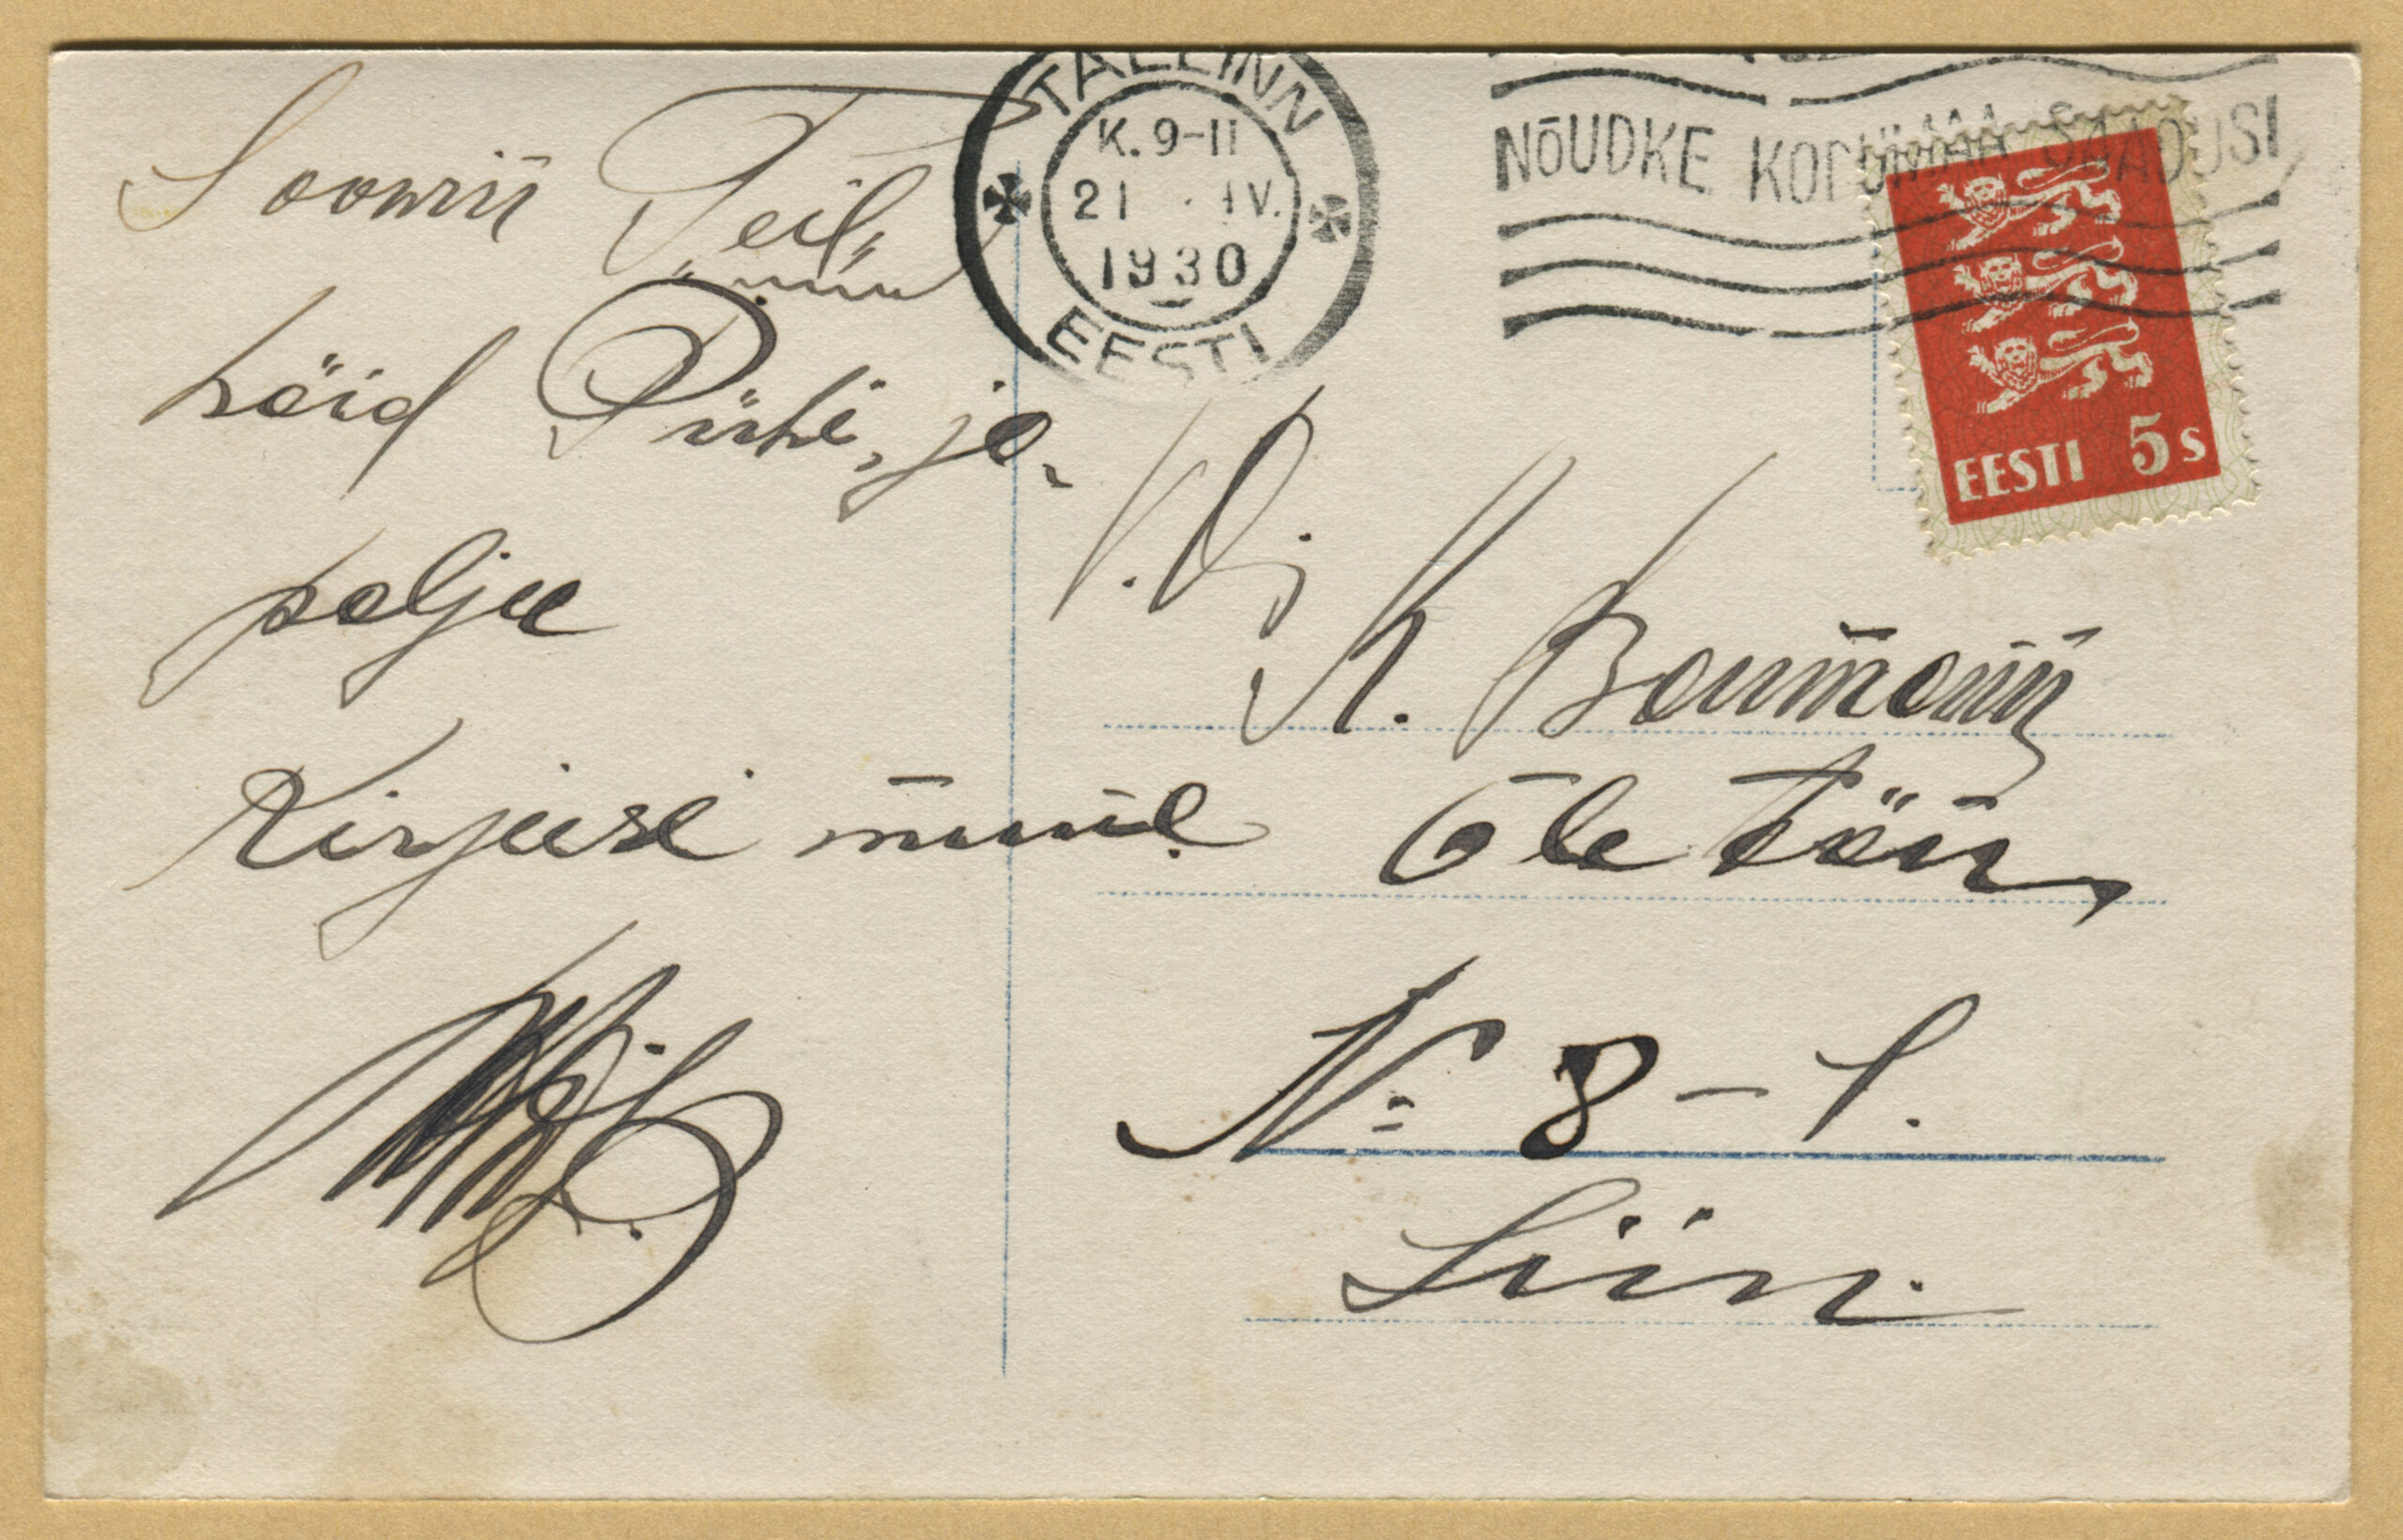 Soowin Teile
häid Pühi, ja
palju
Kirjusi mune
TALLINN
K. 9-11
21 · IV.
1930
EESTI
NÕUDKE KODUMAA SAADUSI
EESTI 5 s
K. Baumann
Õle tän,
№ 8 – 1.
Siin.